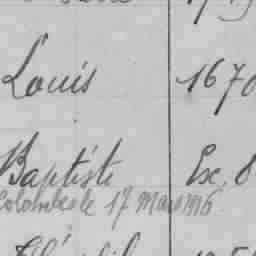 Louis 1670
Baptiste Exc. 8
Colombes le 17 Mars 1916